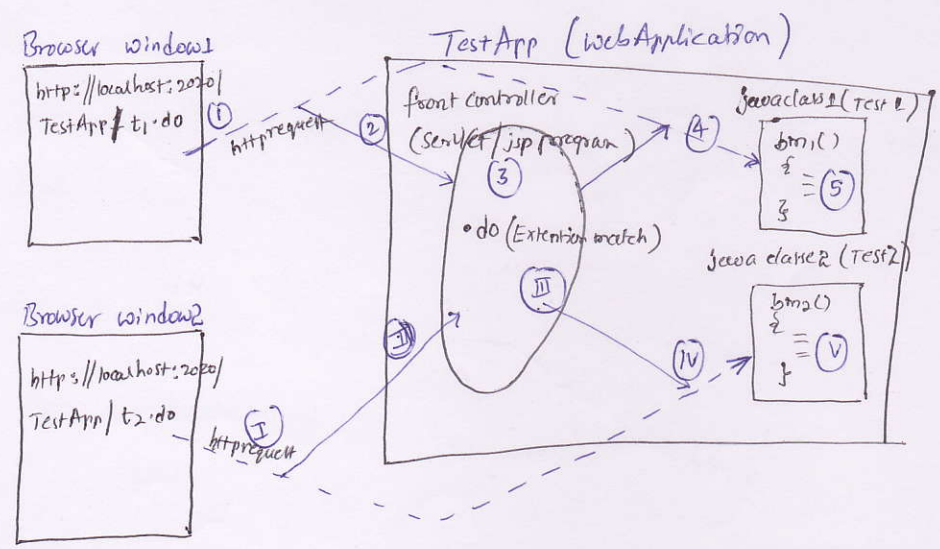 Browser window1
http://localhost:2020/
TestApp/t1.do
1
httprequest
2
TestApp (webApplication)
front controller
(servlet/jsp program)
3
.do (Extention match)
III
4
javaclass1 (Test1)
bm1()
{
5
}
java classe2 (Test2)
bm2()
{
V
}
IV
Browser window2
http://localhost:2020/
TestApp/t2.do
I
httprequest
II